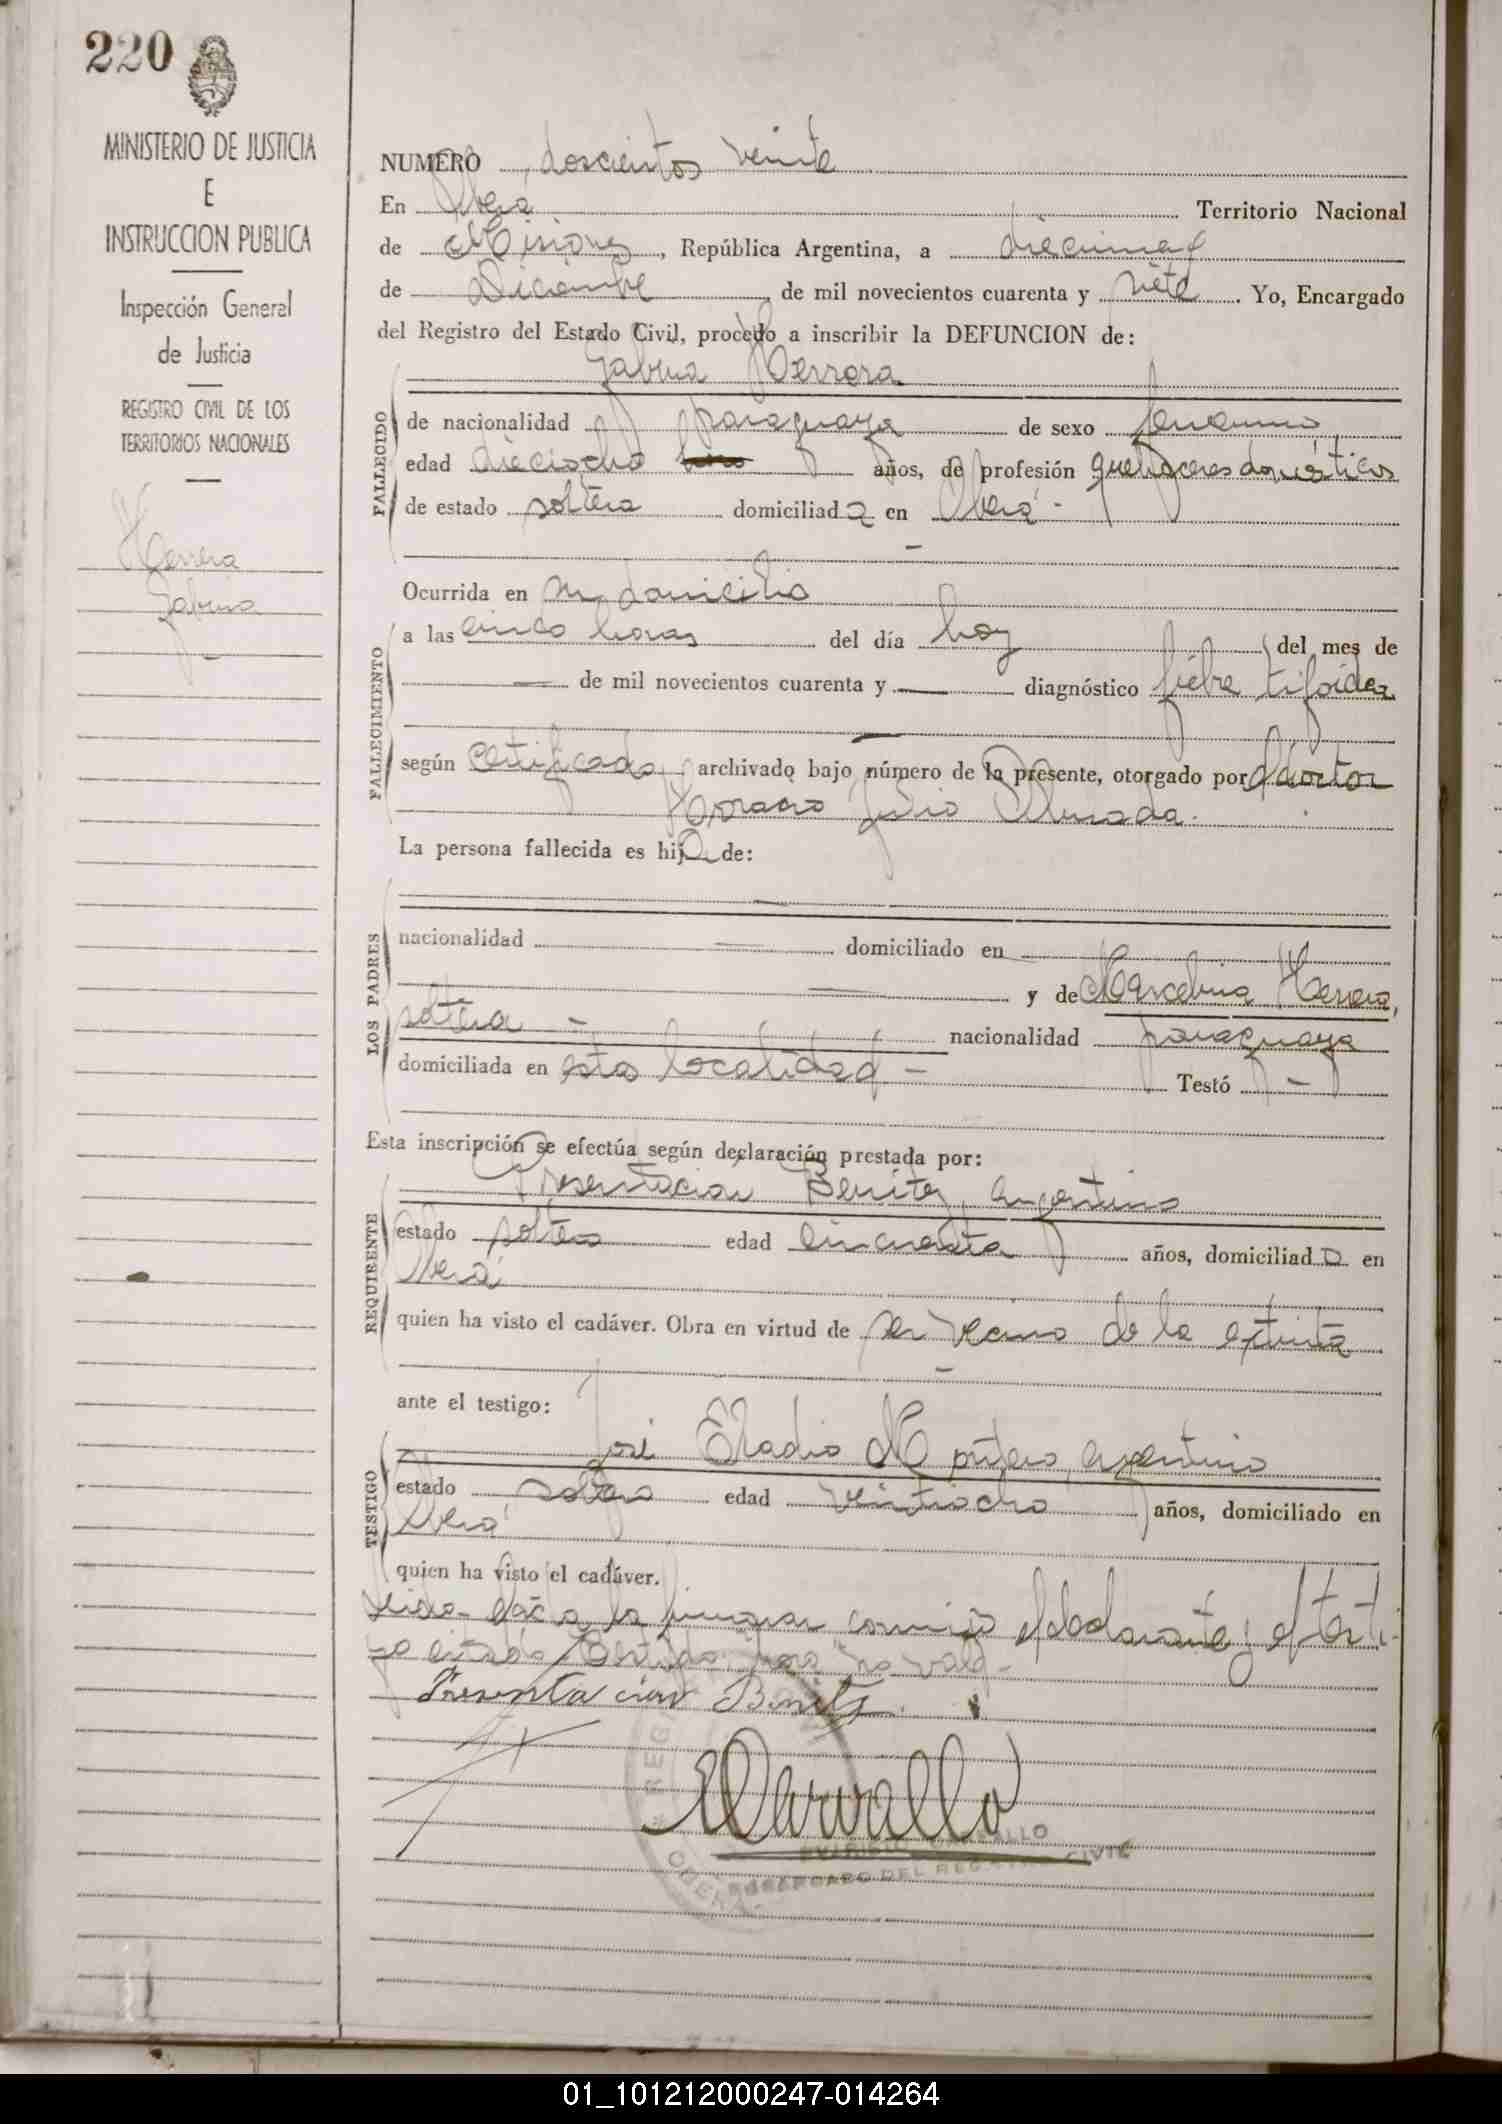 220
MINISTERIO DE JUSTICIA
E
INSTRUCCION PUBLICA
Inspección General
de Justicia
REGISTRO CIVIL DE LOS
TERRITORIOS NACIONALES
Herrera
Sabina
NUMERO doscientos veinte
En Oberá Territorio Nacional
de Misiones, República Argentina, a
de Diciembre de mil novecientos cuarenta y siete. Yo, Encargado
del Registro del Estado Civil, procedo a inscribir la DEFUNCION de:
Sabina Herrera
FALLECIDO
de nacionalidad paraguaya de sexo femenino
edad dieciocho años, de profesión quehaceres domésticos
de estado soltera domiciliada en Oberá -
Ocurrida en su domicilio
FALLECIMIENTO
a las cinco horas del día hoy del mes de
— de mil novecientos cuarenta y — diagnóstico fiebre tifoidea
según certificado archivado bajo número de la presente, otorgado por doctor
Horacio Julio Almada.
La persona fallecida es hija de:
LOS PADRES
nacionalidad — domiciliado en
— y de Marcelina Herrera,
soltera - nacionalidad paraguaya
domiciliada en esta localidad - Testó -
Esta inscripción se efectúa según declaración prestada por:
REQUIRENTE
Presentacion Benitez, argentino
estado soltero edad cincuenta años, domiciliado en
Oberá
quien ha visto el cadáver. Obra en virtud de ser vecino de la extinta
ante el testigo:
TESTIGO
José Eladio argentino
estado soltero edad veintiocho años, domiciliado en
Oberá
quien ha visto el cadáver.
Leida el acta la firman conmigo el declarante y el testi-
go no vale -
Presentacion Benitez.
Carvallo
ENCARGADO DEL REGISTRO CIVIL
OBERA
01_101212000247-014264